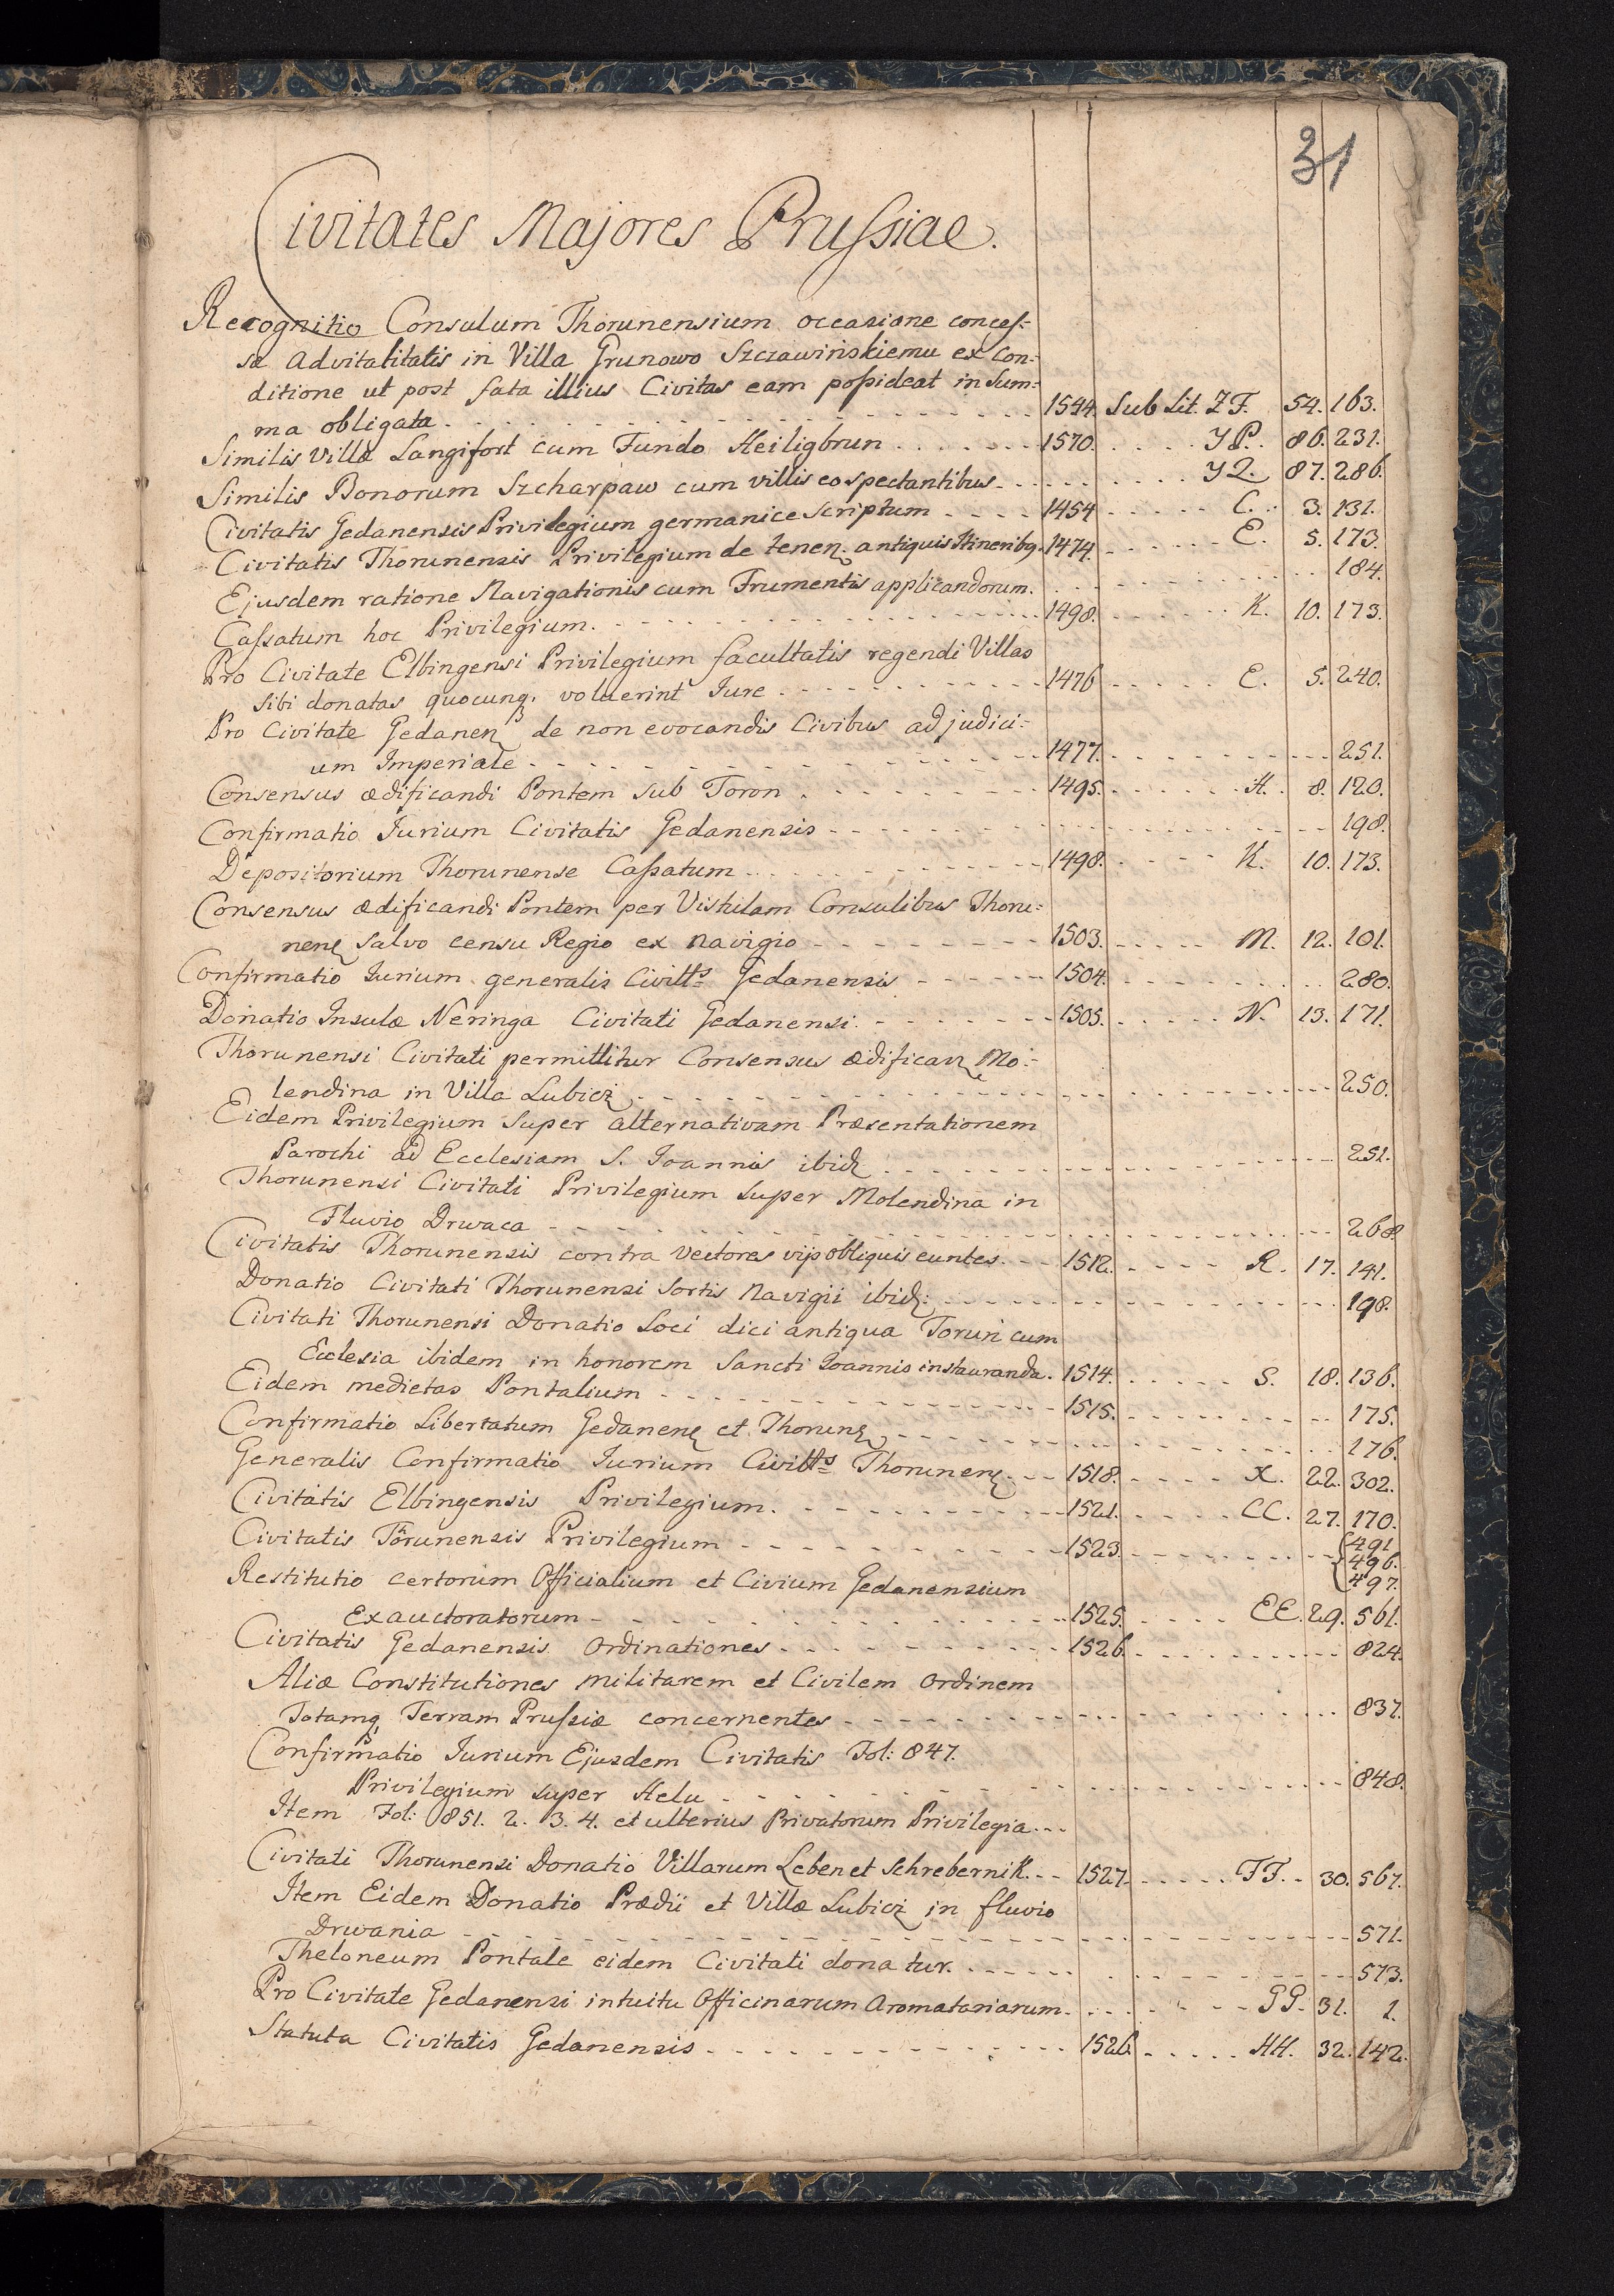 31
Civitates Majores Prussiae.
Recognitio Consulum Thorunensium occasione conces=
sæ Advitalitatis in Villa Grunowo Szczawińskiemu ex Con=
ditione ut post fata illius Civitas eam possideat in Sum=
ma obligata. 1544. Sub Lit. ZF. 54. 163.
Similis Villæ Langifort cum Fundo Heiligbrun 1570. YP. 86. 231.
Similis Bonorum Szcharpaw cum villis eo spectantibus YQ. 87. 286.
Civitatis Gedanensis Privilegium germanice Scriptum 1454 C. 3. 131.
Civitatis Thorunensis Privilegium de tenen. antiquis Itineribq. 1474. E. 5. 173.
Ejusdem ratione Navigationis cum Frumentis applicandorum. 184.
Cassatum hoc Privilegium. 1498. K. 10. 173.
Pro Civitate Elbingensi Privilegium facultatis regendi Villas
sibi donatas quocunq. voluerint Jure 1476 E. 5. 240.
Pro Civitate Gedanen de non evocandis Civibus ad judici=
um Imperiale 1477. 251.
Consensus ædificandi Pontem sub Toron 1495. H. 8. 120.
Confirmatio Jurium Civitatis Gedanensis 198.
Depositorium Thorunense Cassatum 1498. K. 10. 173.
Consensus ædificandi Pontem per Vistulam Consulibus Thoru=
nen salvo censu Regio ex navigio 1503. M. 12. 101.
Confirmatio Jurium generalis Civitts Gedanensis 1504. 280.
Donatio Insulæ Neringa Civitati Gedanensi. 1505. N. 13. 171.
Thorunensi Civitati permittitur Consensus ædifican Mo=
lendina in Villa Lubicz 250.
Eidem Privilegium super alternativam Præsentationem
Parochi ad Ecclesiam S. Joannis ibid 251.
Thorunensi Civitati Privilegium super Molendina in
Fluvio Drwaca 268
Civitatis Thorunensis contra vectores vijs obliquis euntes. 1512. R. 17. 141.
Donatio Civitati Thorunensi sortis navigii ibid: 198.
Civitati Thorunensi Donatio Loci dici antiqua Toruń cum
Ecclesia ibidem in honorem Sancti Joannis instauranda. 1514. S. 18. 136.
Eidem medietas Pontalium 1515. 175.
Confirmatio Libertatum Gedanen et Thorun 176.
Generalis Confirmatio Jurium Civitts Thorunen. 1518. X. 22. 302.
Civitatis Elbingensis Privilegium. 1521. CC. 27. 170.
Civitatis Torunensis Privilegium 1523. 491.
496.
497.
Restitutio certorum Officialium et Civium Gedanensium
Exauctoratorum 1525. EE. 29. 561.
Civitatis Gedanensis Ordinationes 1526. 824.
Aliæ Constitutiones militarem et Civilem Ordinem
Totamq Terram Prussiæ concernentes 837.
Confirmatio Jurium Ejusdem Civitatis Fol: 847.
Privilegium super Helu 848.
Item Fol: 851. 2. 3. 4. et ulterius Privatorum Privilegia...
Civitati Thorunensi Donatio Villarum Leben et Schrebernik. 1527. FF. 30. 567.
Item Eidem Donatio Prædii et Villæ Lubicz in fluvio
Drwania 571.
Theloneum Pontale eidem Civitati donatur. 573.
Pro Civitate Gedanensi intuitu Officinarum Aromatariarum. GG. 31. 1.
Statuta Civitatis Gedanensis 1526. HH. 32. 142.